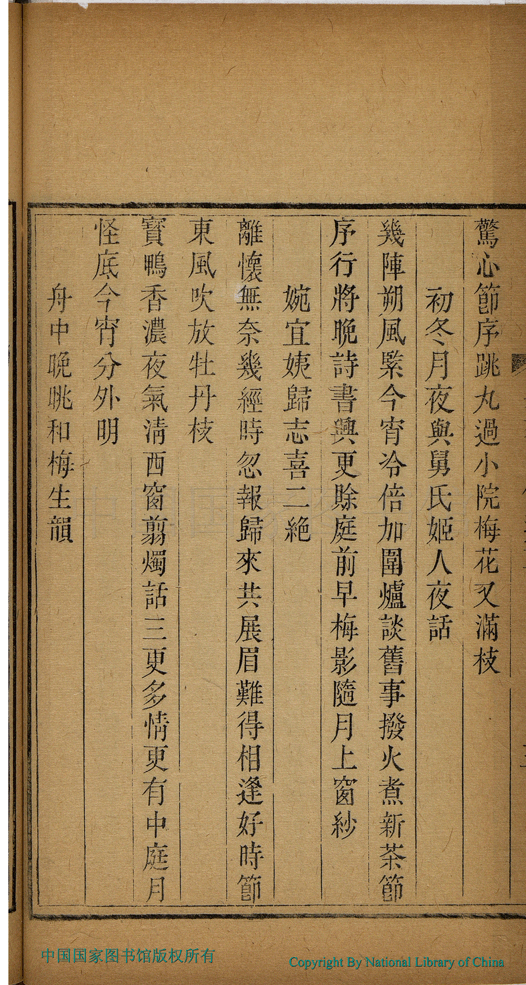 驚心節序跳丸過小院梅花又滿枝
初冬月夜與舅氏姬人夜話
幾陣朔風緊今宵冷倍加圍爐談舊事撥火煮新茶節
序行將晚詩書興更賒庭前早梅影隨月上窗紗
婉宜姨歸志喜二絶
離懷無奈幾經時忽報歸來共展眉難得相逢好時節
東風吹放牡丹枝
寳鴨香濃夜氣淸西窗翦燭話三更多情更有中庭月
怪底今宵分外明
舟中晚眺和梅生韻
中国国家图书馆版权所有
Copyright By National Library of China